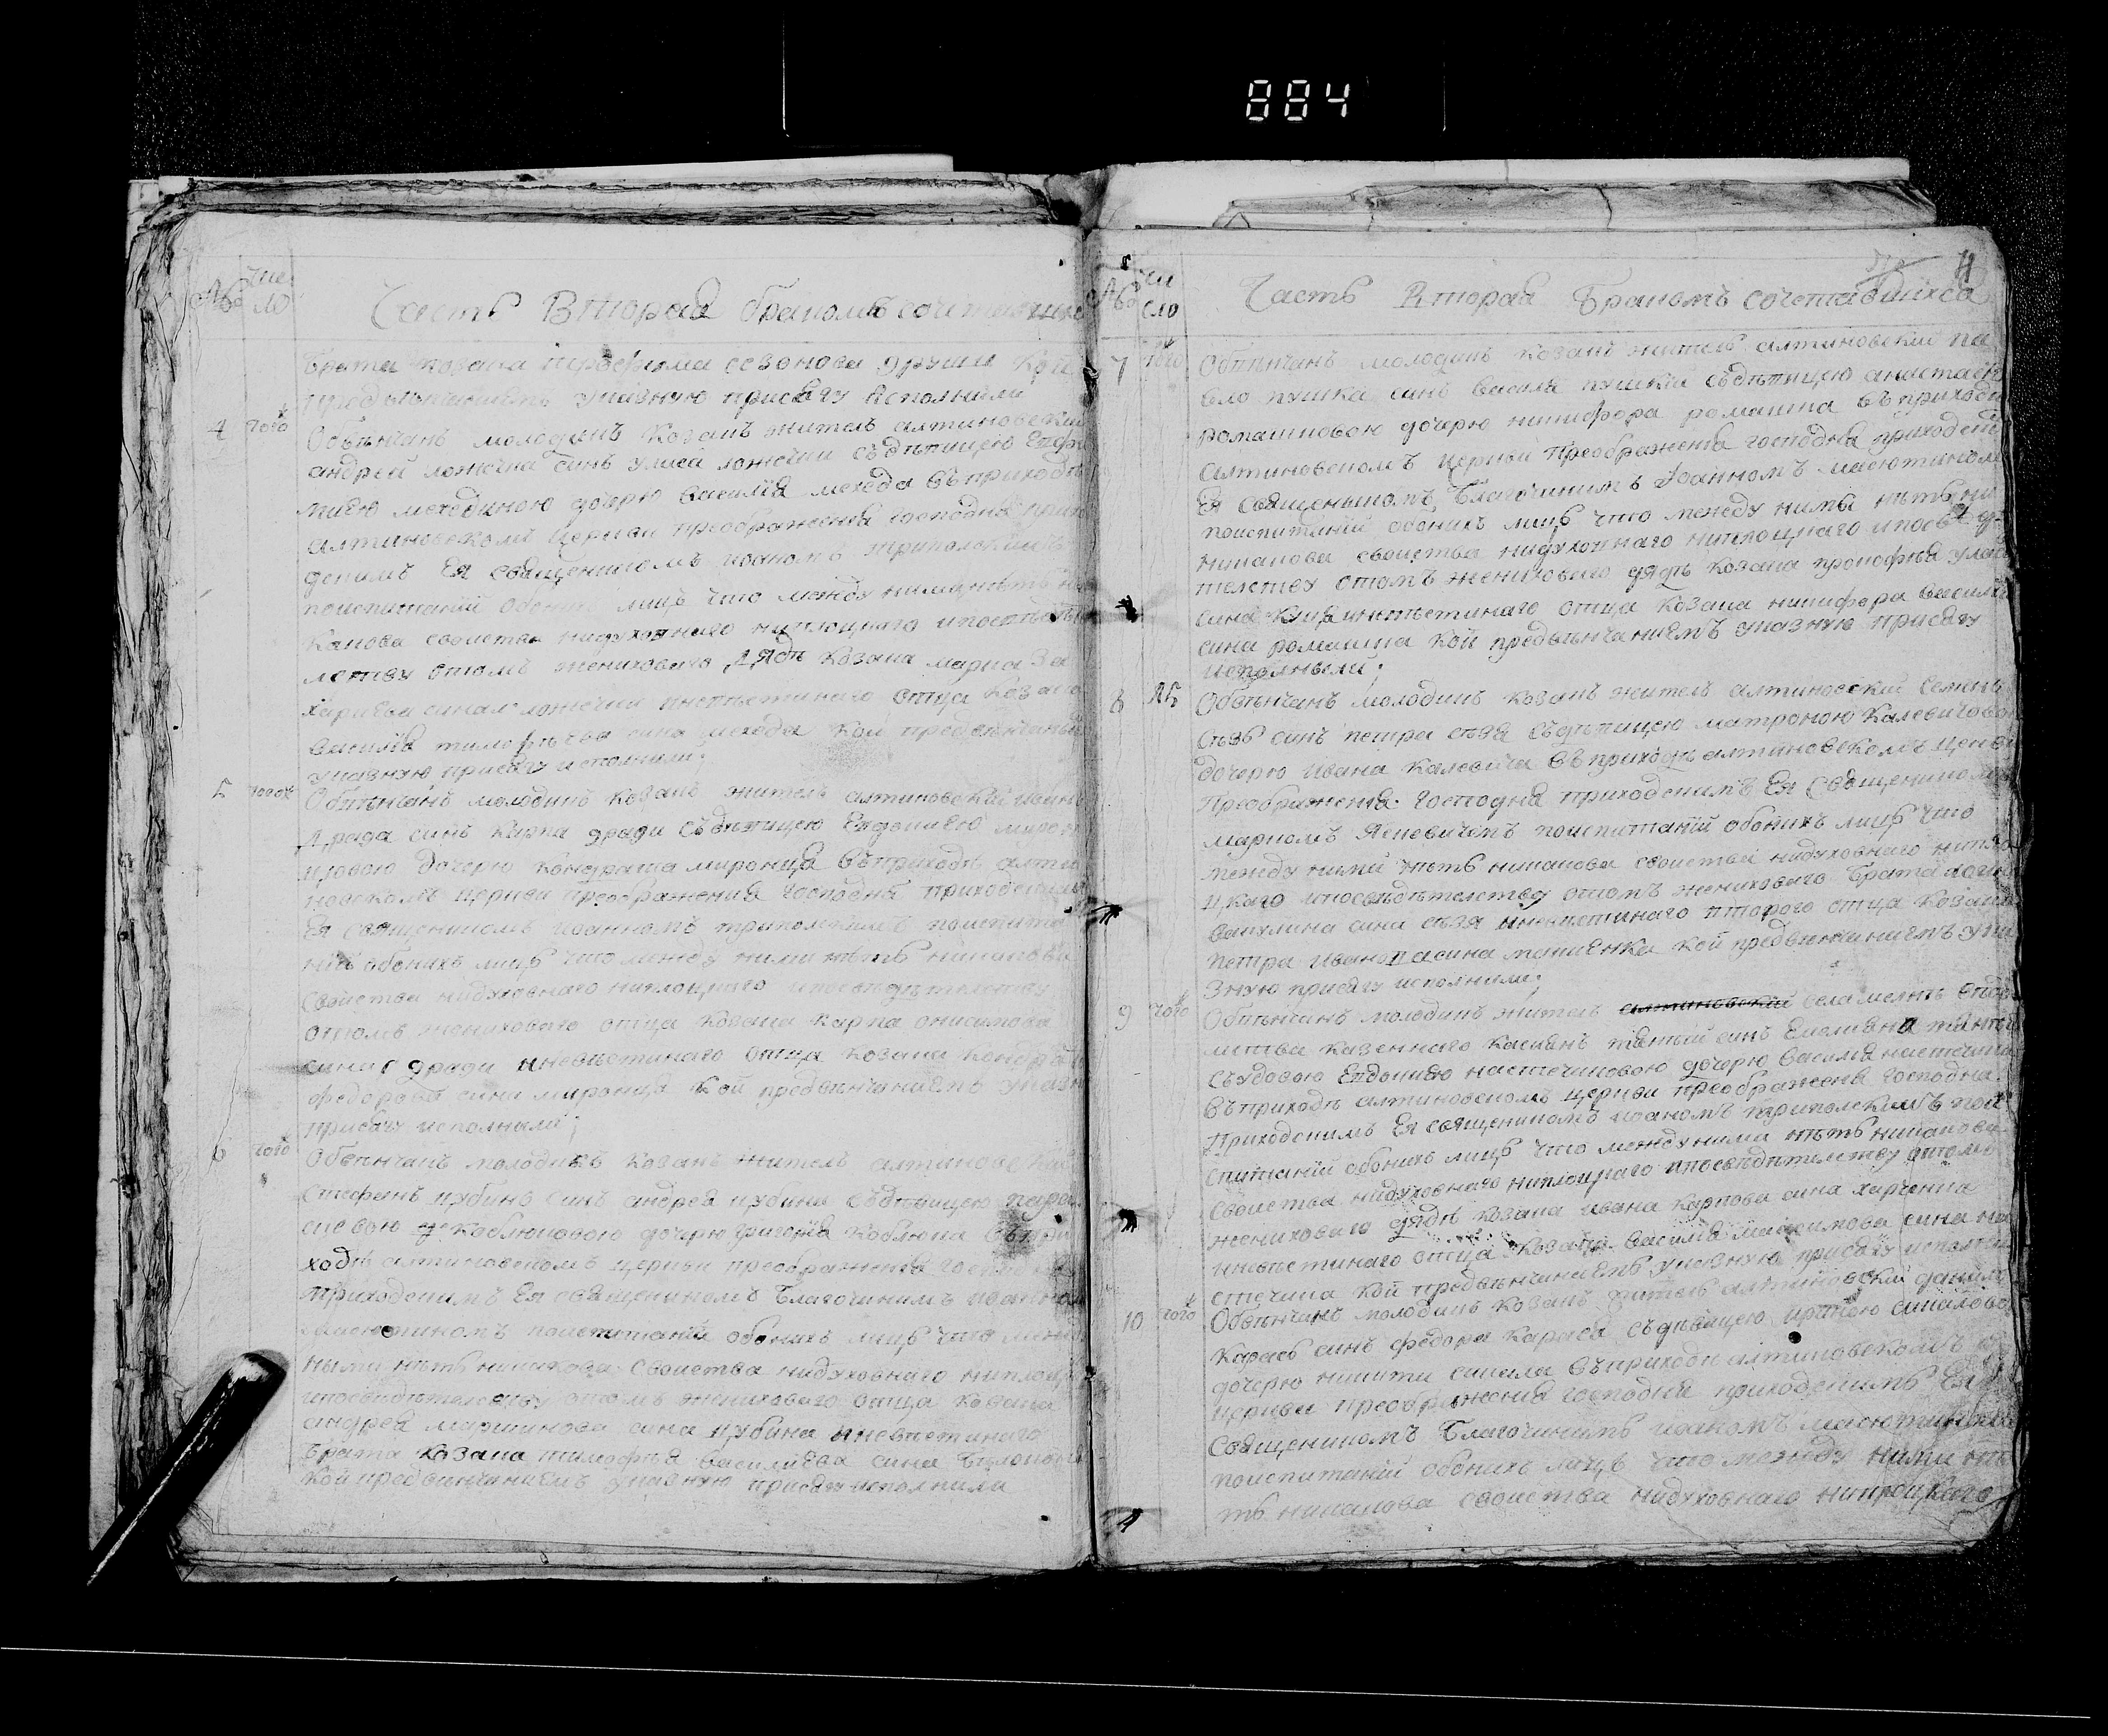 884
№ Чис
ло
Часть Вторая бракомъ сочетавших
брата козака сезонова други Кои
предвѣнчаниемъ указную присягу исполнили
4 того ж
Обвѣнчанъ молодикъ Козакъ житель алтиновский
андрей ложечка синъ ложечки съдѣвицею Евфи
миею меходиною дочерю василия мехеда въприходѣ
алтиновскомъ церкви преображения господня прихо
децкимъ Ея священикомъ иоаномъ триполскимъ
поиспитаній обоихъ лицъ что между нима нѣтъ ни
какова своиства нидуховнаго ниплоцкаго ипосвѣдѣте
лству отомъ женихового дядѣ Козака марка За
хариева сина ложечки иневѣстиного отца Козака
василия тимофѣева сина мехеда Кои предвѣнчаниемъ
указную присягу исполнили;
5 того ж
Обвѣнчанъ молодикъ Козакъ житель алтиновский
драга синъ Карпа драги съдѣвицею Евдокиею мирон
цовою дочерю Кондрата миронца въприходѣ алти
новскомъ церкви преображения господня приходскимъ
Ея священикомъ иоанномъ триполскимъ поиспита
нии обоихъ лицъ что между ними нѣтъ никакова
своиства нидуховнаго ниплоцкаго ипосвѣдѣтелству
отомъ женихового отца козака карпа онисимова
сина драги иневѣстинаго отца козака Кондрата
федорова сина миронца Кои предвѣнчаниемъ указн
присягу исполнили;
6 того ж
Обвѣнчанъ молодикъ Козакъ житель алтиновский
стефанъ цубинъ синъ андрея цубина съдѣвицею пара
скевою Коблюковою дочерю григория Коблюка въпри
ходѣ алтиновскомъ церкви преображения господня
приходскимъ Ея священикомъ Благочинимъ иоанном
масютиномъ поиспитаній обоихъ лицъ что между
ными нѣтъ никакова своиства нидуховнаго ниплоц
ипосвѣдѣтелству отомъ женихового отца козака
андрея мартинова сина цубина иневѣстинаго
брата козака тимофѣя василиева сина
Кои предвѣнчаниемъ указную присягу исполнили
11
№ чи
сло
Часть Вторая Бракомъ сочетавшихся
7 того
Обвѣнчанъ молодикъ козакъ житель алтиновский па
вло пушка синъ василя пушки съдѣвицею анастасі
ромашковою дочерю никифора ромашка въприходѣ
алтиновскомъ церкви Преображения господня приходским
Ея священикомъ Благочинимъ Иоанномъ масютином
поиспитаній обоихъ лицъ что между нимы нѣтъ ни
никакова своиства нидуховнаго ниплоцкаго ипосвѣдѣ
телству отомъ женихового дядѣ козака прокофия
сина иневѣстинаго отца козака никифора василия
сина ромашка кои предвѣнчаниемъ указную присягу
исполныли;
8
Обвѣнчанъ молодикъ козакъ житель алтиновский семенъ
сѣзъ синъ петра сѣзя съдѣвицею матроною Калевичово
дочерю ивана калевича въприходѣ алтиновскомъ церкви
Преображения господня приходскимъ Ея священикомъ
маркомъ Ясневичемъ поиспитаній обоихъ лицъ что
между ними нѣтъ никакова своиства нидуховнаго нипло
цкаго ипосвѣдѣтелству отомъ женихового брата
вакулина сина сѣзя иневѣстинаго второго отца козака
петра иванова сина Кои предвѣнчаниемъ ука
зную присягу исполнили;
9 того ж
Обвѣнчанъ молодикъ житель алтиновский села
казеннаго касиянъ синъ Емелияна
съудовою Евдокиею настечиковою дочерю василия настечика
въприходѣ алтиновскомъ церкви преображения господня
Приходскимъ Ея священикомъ иоаномъ триполскимъ пои
спитаній обоихъ лицъ что между нима нѣтъ никакова
своиства нидуховнаго ниплоцкаго ипосвѣдѣтелству отомъ
женихового дядѣ козака ивана карпова сина харченка
иневѣстинаго отца козака василия максимова сина на
стечика Кои предвѣнчаниемъ указную присягу исполнили
10 того ж
Обвѣнчанъ молодикъ Козакъ житель алтиновский данило
карась синъ федора карася съдѣвицею
дочерю никити въприходѣ алтиновскомъ
церкви преображения господня приходскимъ Ея
священикомъ Благочинимъ иоаномъ масютиномъ
поиспитаній обоихъ лицъ что между ними нѣ
тъ никакова своиства нидуховнаго ниплоцкаго